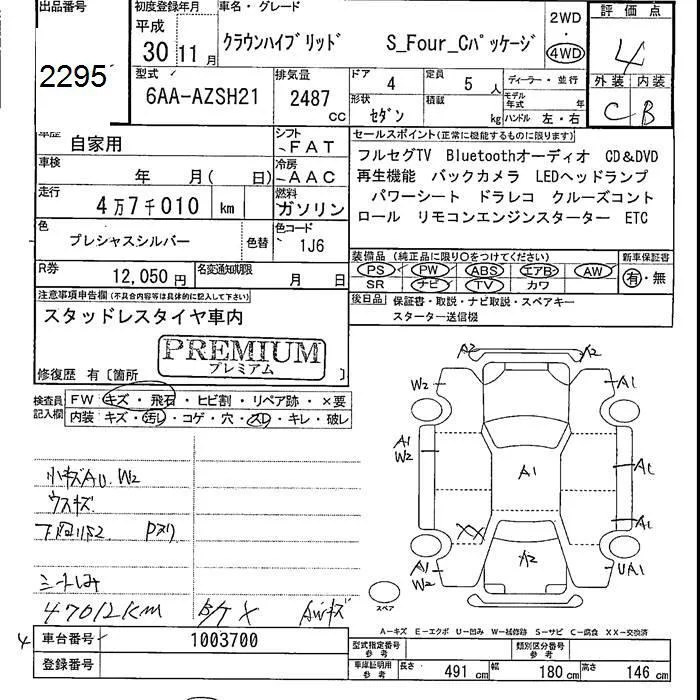 出品番号 初度登録年月 車名・グレード 評価点
平成 2WD
30 11月 クラウンハイブリッド S_Four_Cパッケージ 4WD 4
2295 型式 排気量 ドア 4 定員 5人 ディーラー・並行 外装 内装
6AA-AZSH21 2487cc 形状 セダン 積載 kg モデル年式 年 ハンドル 左・右 C B
車歴 自家用 シフト FAT セールスポイント(正常に機能するものに限ります)
車検 年 月( 日) 冷房 AAC フルセグTV Bluetoothオーディオ CD&DVD
再生機能 バックカメラ LEDヘッドランプ
走行 4万7千010km 燃料 ガソリン パワーシート ドラレコ クルーズコント
ロール リモコンエンジンスターター ETC
色 プレシャスシルバー 色替 色コード 1J6
装備品(純正品に限り○をつけてください) 新車保証書
R券 12,050円 名変通知期限 月 日 PS PW ABS エアB AW 有・無
SR ナビ TV カワ
注意事項申告欄(不具合内容等は具体的に記入して下さい) 後日品 保証書・取説・ナビ取説・スペアキー
スターター送信機
スタッドレスタイヤ車内
PREMIUM
プレミアム
修復歴 有〔箇所 〕
検査員記入欄 FW キズ・飛石・ヒビ割・リペア跡・×要
内装 キズ・汚レ・コゲ・穴・スレ・キレ・破レ
A2 A2
W2 A1
A1 W2 A1 A1
A1
XX A2
A1 W2 UA1
スペア
小キズAU.W2
ウスキズ
シートしみ
47012KM AWキズ
A-キズ E-エクボ U-凹み W-補修跡 S-サビ C-腐食 XX-交換済
4 車台番号 1003700 型式指定番号 参考 類別区分番号 参考
登録番号 車庫証明用 参考 長さ 491cm 幅 180cm 高さ 146cm